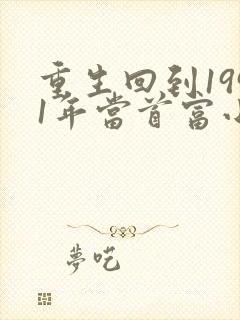 重生回到199
1年當首富小
夢吃